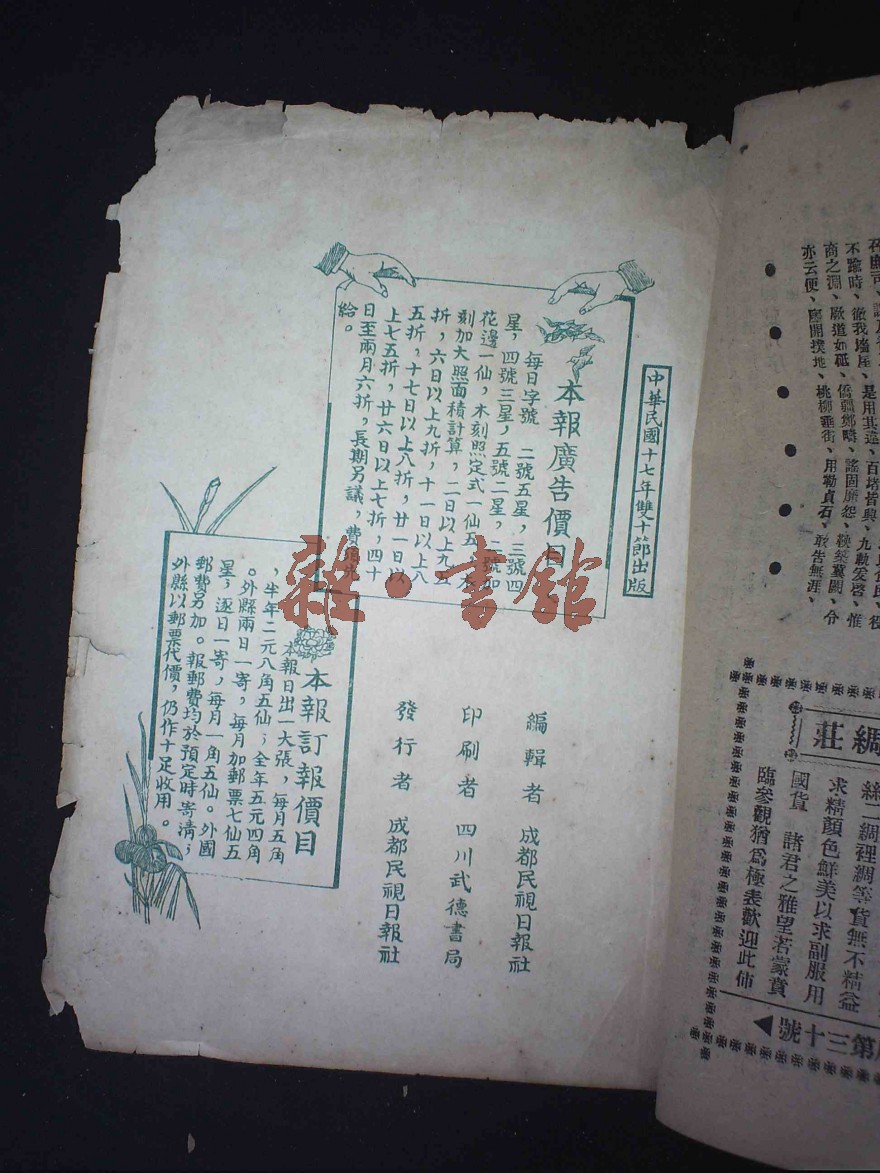 中華民國十七年雙十節出版
本報廣告價目
每日字號 二號五星，三號四
星，四號三星，五號二星，二號加
花邊一仙，木刻照定式一仙五
刻加大照面積計算，二日以上九五
折，六日以上九折，十一日以上八
五折，十七日以上八折，廿一日以
上七五折，廿六日以上七折，四十
日至兩月六折，長期另議，費
給。
編輯者 成都民視日報社
印刷者 四川武德書局
發行者 成都民視日報社
本報訂報價目
本報日出一大張，每月五角
，半年二元八角五仙；全年五元四角
。外縣兩日一寄，每月加郵票七仙五
星；逐日一寄，每月一角五仙。外國
郵費另加。報郵費均於預定時寄清；
外縣以郵票代價，仍作十足收用。
雜·書館
不踰時、徹我墻屋、是用其遠、百堵皆興、九軌爰啓、惟
商之淵、厥道如砥、僑疆鄭疇、謠固庶怨、鞅築冀闕、令
亦云便、廛開撲地、桃柳垂街、用勒貞石、敢告無涯、
綢莊
絲二綢裡綢等貨無不精益
求精顏色鮮美以求副服用
國貨 諸君之雅望若蒙賁
臨參觀猶爲極表歡迎此佈
第三十號